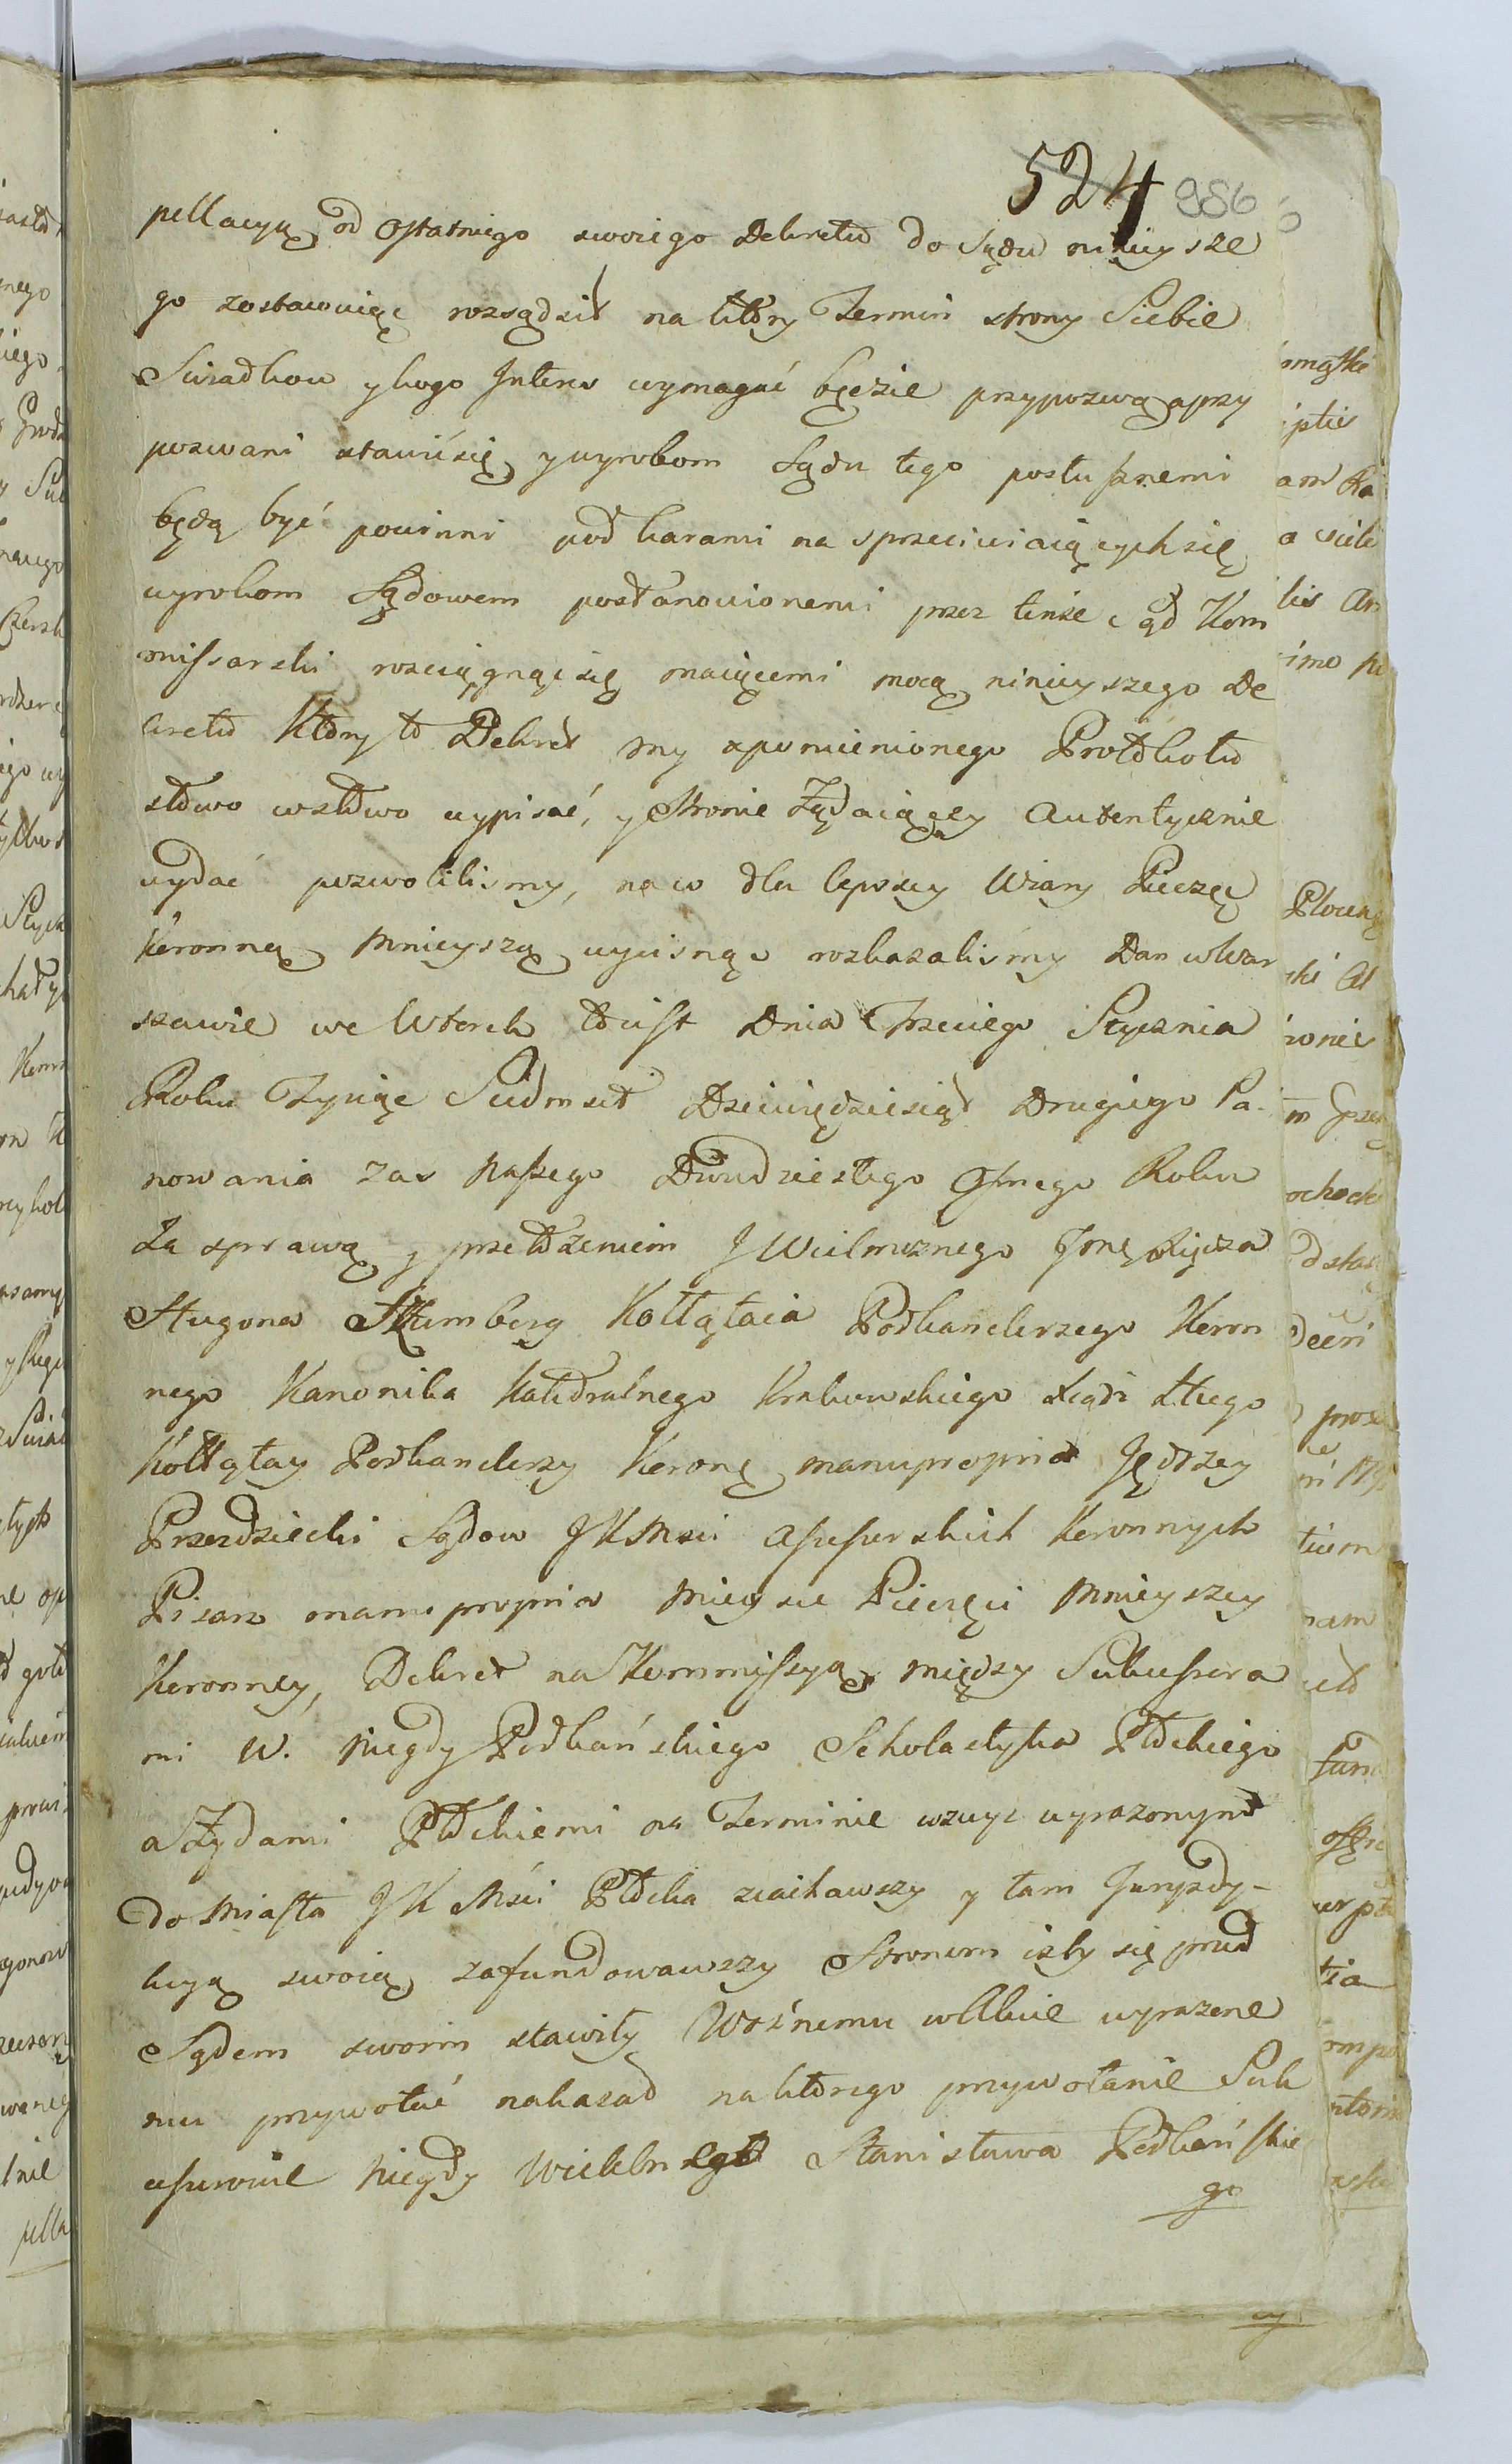 524 986
pellacyą od Ostatniego swoiego Dekretu do Sądu ninieysze
go zostawuiąc rozsądził na który Termin strony Siebie
Swiadkow y kogo Interes wymagać będzie przypozwą aprzy
pozwani stawićsię y wyrokom Sądu tego posłusznemi
będą być powinni pod karami na sprzeciwiaiących się
wyrokom Sądowem postanowionemi przez tenże Sąd Kom
missarski rozciągnąć się maiącemi mocą ninieyszego De
kretu Który to Dekret my zpomienionego Protokołu
słowo wsłowo wypisać, y Stronie Żądaiącey Autentycznie
wydać pozwoliliśmy, na co dla lepszey Wiary Pieczęć
Koronną Mnieyszą wycisnąc rozkazaliśmy Dan wWar
szawie we Wtorek to iest Dnia Trzeciego Stycznia
Roku Tysiąc Siedmset Dziewiędziesiąt Drugiego Pa-
nowania zas Naszego Dwudziestego Osmego Roku
Za sprawą y przełożeniem J Wielmożnego Jmę Xiędza
Hugona Sztumberg Kołłątaia Podkanclerzego Koron
nego Kanonika Katedralnego Krakowskiego Xiądz Hugo
Kołłątay Podkanclerzy Koronę manu propria Jędrzey
Przezdziecki Sądow JK Mści Assessorskich Koronnych
Pisarz manu propria Mieysce Pieczęci Mnieyszey
Koronney, Dekret na Kommissyą między Sukcessora
mi W. Niegdy Podkańskiego Scholastyka Płockiego
a Żydami Płockiemi na Terminie wzwyż wyrazonym
do Miasta JK Mści Płocka ziachawszy y tam Juryzdy-
kcyą swoią zafundowawszy Stronom izby się przed
Sądem swoim stawiły Woźnemu wAkcie wyrazone
mu przywołać nakazał na którego przywołanie Suk
cessorowie Niegdy Wielebnego Stanisława Podkańskie
go